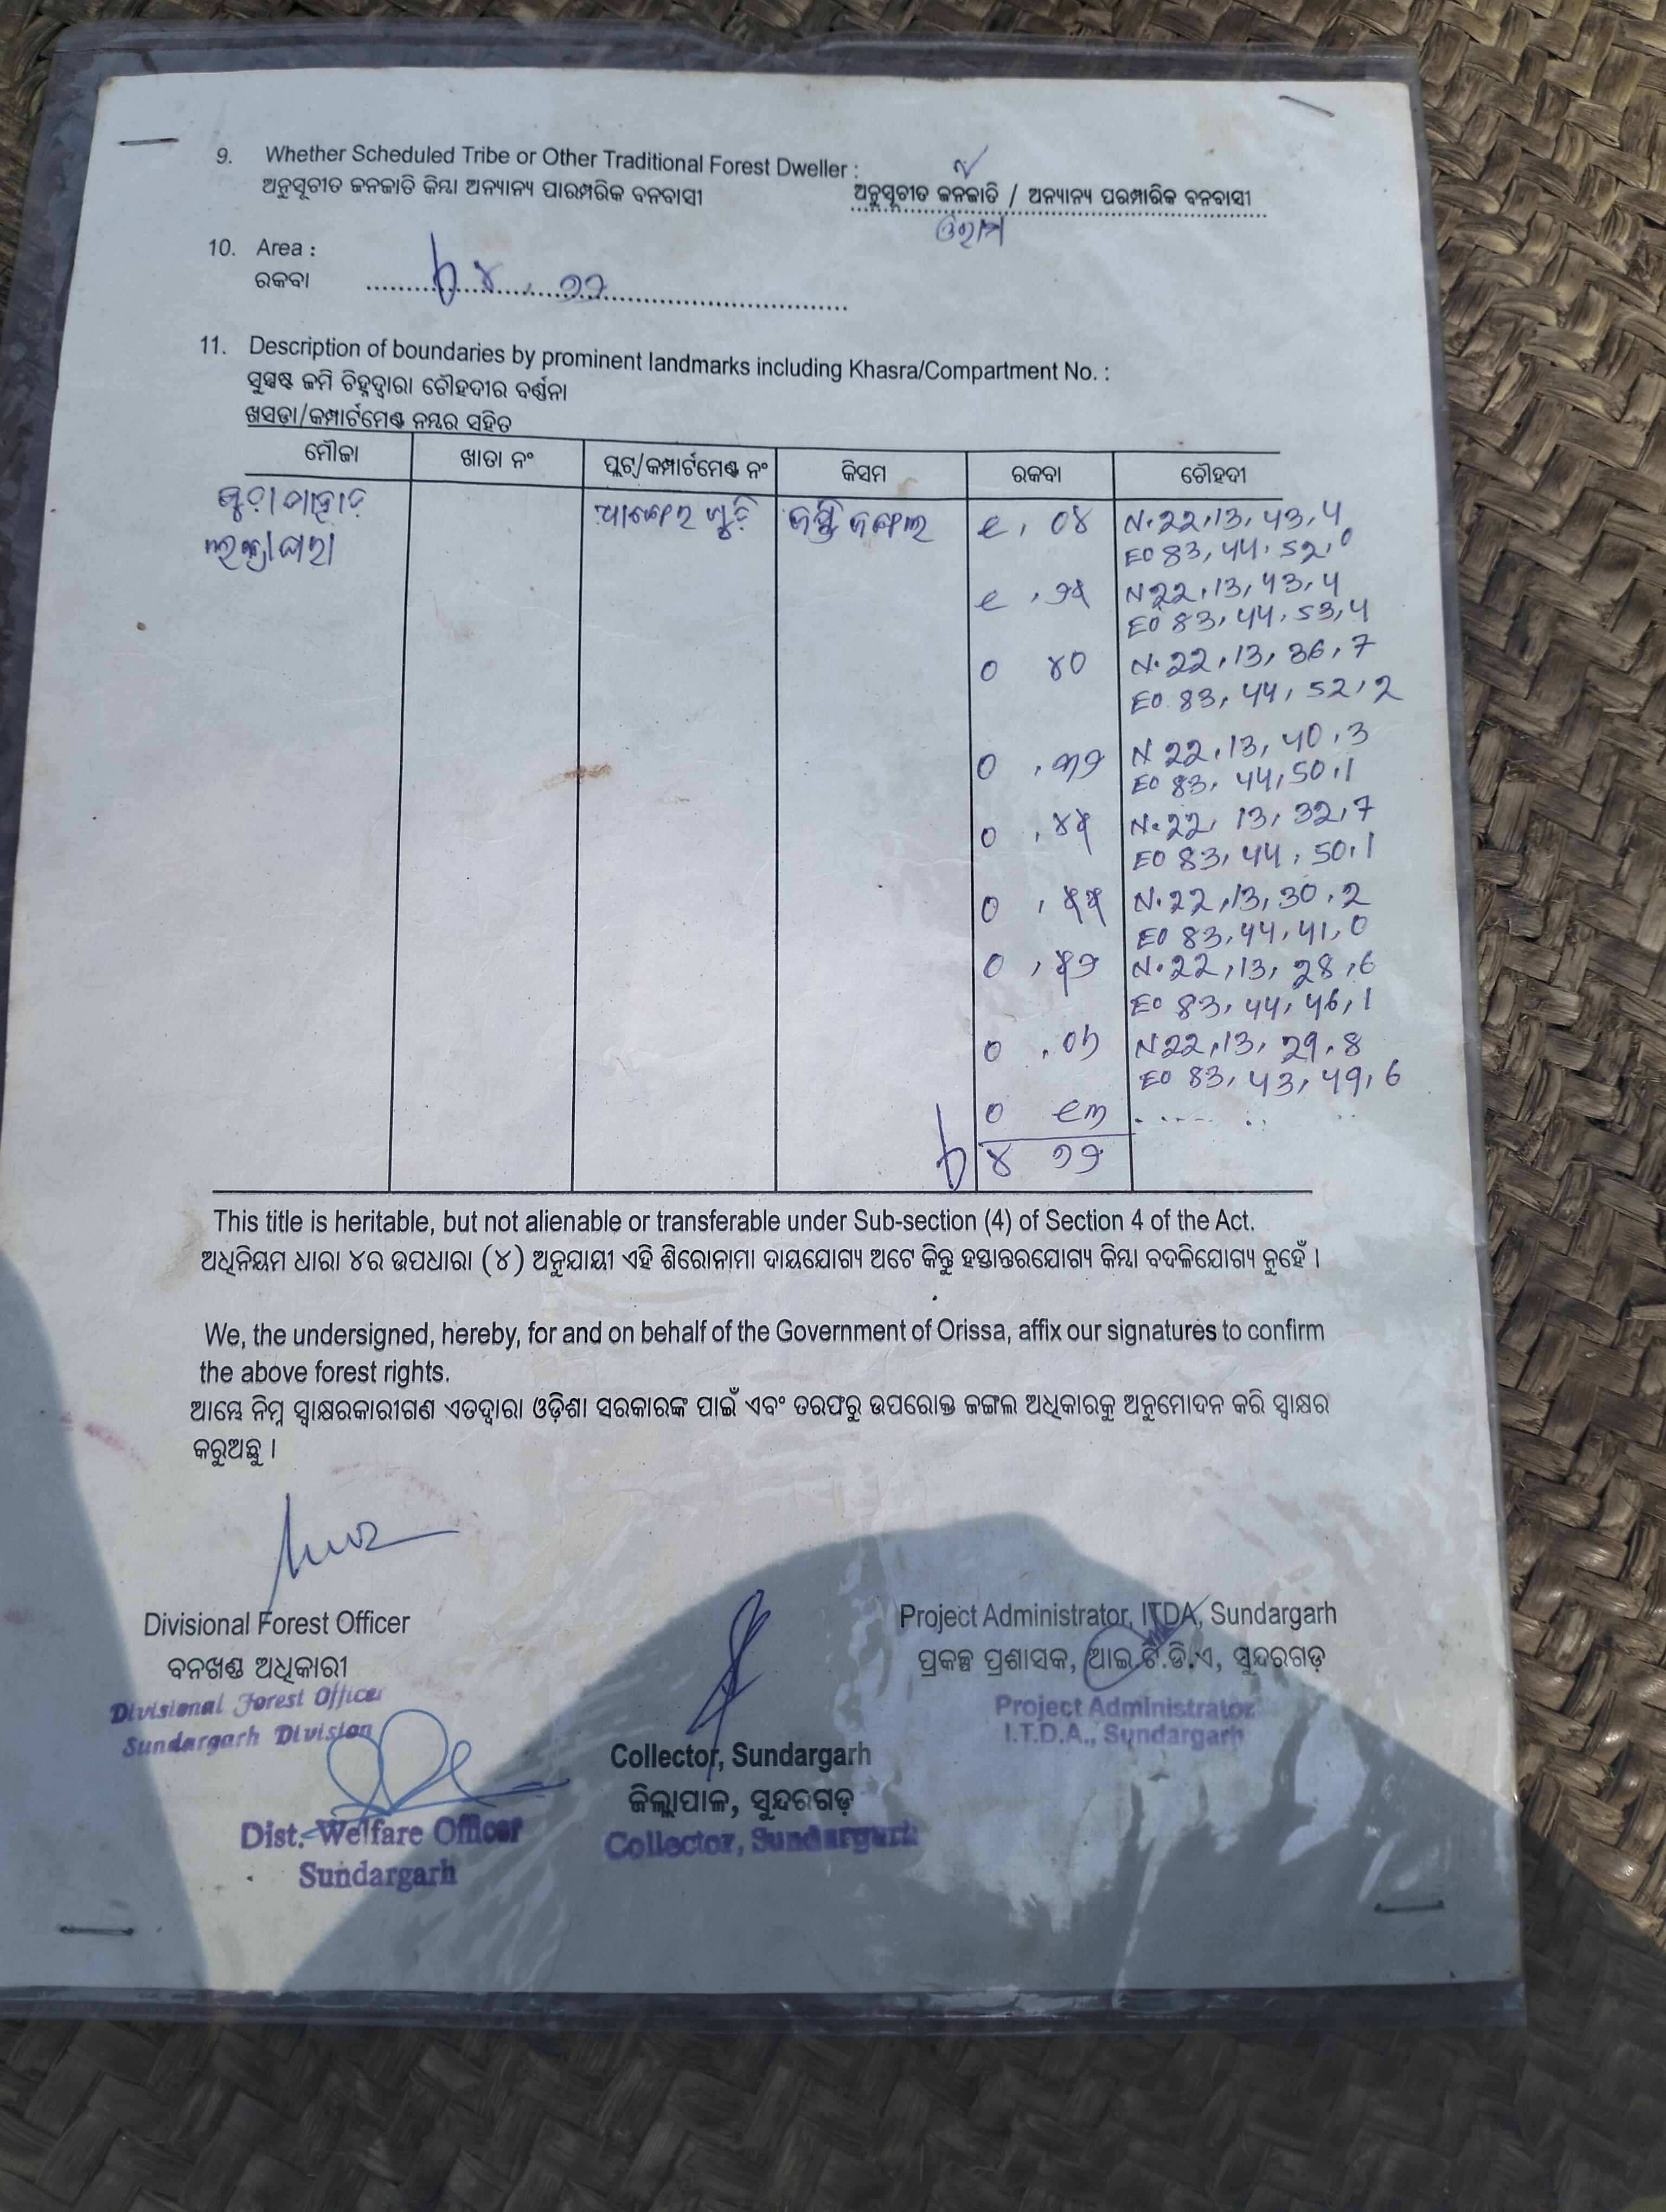 9. Whether Scheduled Tribe or Other Traditional Forest Dweller :
ଅନୁସୂଚୀତ ଜନଜାତି କିମ୍ବା ଅନ୍ୟାନ୍ୟ ପାରମ୍ପରିକ ବନବାସୀ
ଅନୁସୂଚୀତ ଜନଜାତି / ଅନ୍ୟାନ୍ୟ ପରମ୍ପାରିକ ବନବାସୀ
ଓରାମ
10. Area :
ରକବା
୪.୭୨
11. Description of boundaries by prominent landmarks including Khasra/Compartment No. :
ସୁସ୍ପଷ୍ଟ ଜମି ଚିହ୍ନଦ୍ୱାରା ଚୌହଦୀର ବର୍ଣ୍ଣନା
ଖସଡା/କମ୍ପାର୍ଟମେଣ୍ଟ ନମ୍ବର ସହିତ
ମୌଜା ଖାତା ନଂ ପ୍ଲଟ୍/କମ୍ପାର୍ଟମେଣ୍ଟ ନଂ କିସମ ରକବା ଚୌହଦୀ
ଜଙ୍ଗଲ ୧.୦୪ N.22,13,43,4
E0 83,44,52,0
N22,13,43,4
E0 83,44,53,4
୦ ୪୦ N.22,13,36,7
E0 83,44,52,2
୦.୩୨ N 22,13,40,3
E0 83,44,50,1
N.22,13,32,7
E0 83,44,50,1
୦.୫୫ N.22,13,30,2
E0 83,44,41,0
୦.୫୨ N.22,13,28,6
E0 83,44,46,1
N22,13,29,8
E0 83,43,49,6
୦ ୧୩
୪ ୭୨
This title is heritable, but not alienable or transferable under Sub-section (4) of Section 4 of the Act.
ଅଧିନିୟମ ଧାରା ୪ର ଉପଧାରା (୪) ଅନୁଯାୟୀ ଏହି ଶିରୋନାମା ଦାୟଯୋଗ୍ୟ ଅଟେ କିନ୍ତୁ ହସ୍ତାନ୍ତରଯୋଗ୍ୟ କିମ୍ବା ବଦଳିଯୋଗ୍ୟ ନୁହେଁ ।
We, the undersigned, hereby, for and on behalf of the Government of Orissa, affix our signatures to confirm
the above forest rights.
ଆମ୍ଭେ ନିମ୍ନ ସ୍ୱାକ୍ଷରକାରୀଗଣ ଏତଦ୍ୱାରା ଓଡ଼ିଶା ସରକାରଙ୍କ ପାଇଁ ଏବଂ ତରଫରୁ ଉପରୋକ୍ତ ଜଙ୍ଗଲ ଅଧିକାରକୁ ଅନୁମୋଦନ କରି ସ୍ୱାକ୍ଷର
କରୁଅଛୁ ।
Divisional Forest Officer
ବନଖଣ୍ଡ ଅଧିକାରୀ
Divisional Forest Officer
Sundargarh Division
Project Administrator, ITDA, Sundargarh
ପ୍ରକଳ୍ପ ପ୍ରଶାସକ, ଆଇ.ଟି.ଡି.ଏ, ସୁନ୍ଦରଗଡ଼
Project Administrator
I.T.D.A., Sundargarh
Collector, Sundargarh
ଜିଲ୍ଲାପାଳ, ସୁନ୍ଦରଗଡ଼
Collector, Sundargarh
Dist. Welfare Officer
Sundargarh